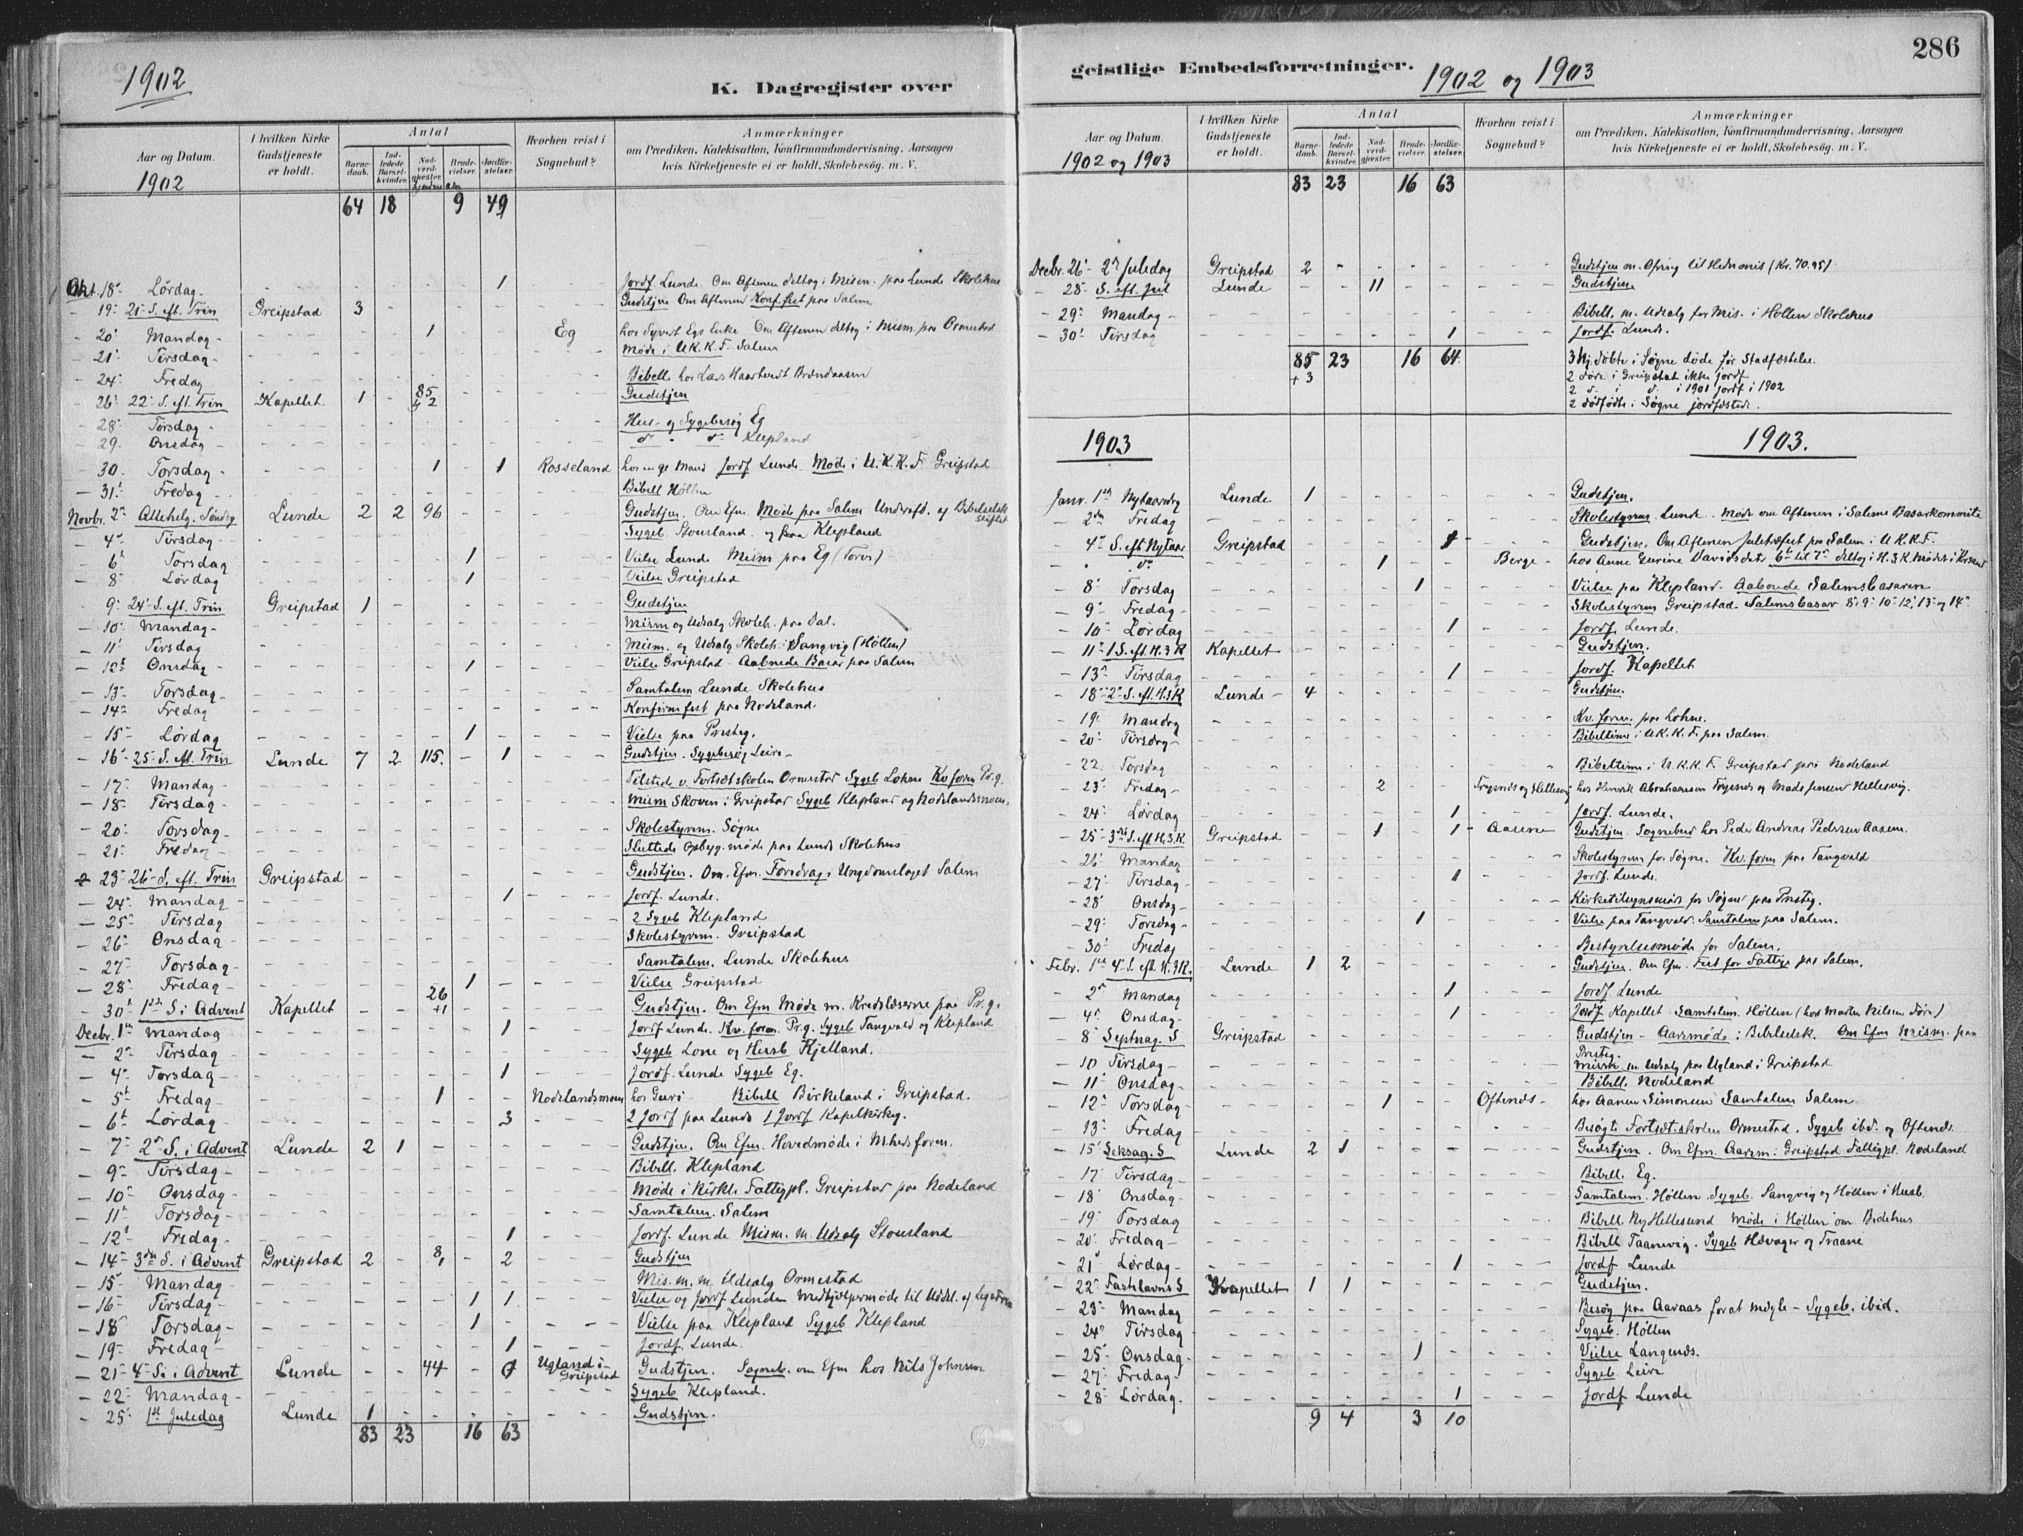 1902
K. Dagregister over
Aar og Datum.
1902
I hvilken Kirke Gudstjeneste er holdt.
Antal
Barnedaab.
Indledede Barselkvinder.
Nadverdgjester.
Brudevielser.
Jordfæstelser.
Hvorhen reist i Sognebud?
Anmærkninger
om Prædiken, Katekisation, Konfirmandundervisning, Aarsagen
hvis Kirketjeneste ei er holdt, Skolebesøg, m. V.
64 18 9 49
Okt. 18 Lørdag 1 Jordf. Lunde. Om Aftenen deltog i Mism. paa Lunde Skolehus
- 19 21 S. eft. Trin Greipstad 3 Gudstjen Om Aftenen Konf.fest paa Salem
- 20 Mandag 1 Eg hos Syvert Egs Enke Om Aftenen deltog i Mism. paa Ormestad
- 21 Tirsdag Møde i U.K.K.F. Salem
- 24 Fredag Bibell. hos Lars
- 26 22 S. eft. Trin Kapellet. 1 85 + 2 Gudstjen
- 28 Tirsdag Hus- og Sygebesøg Eg
- 29 Onsdag d. d. Klepland
- 30. Torsdag 1 1 Rosseland Jordf Lunde Møde i U.K.K.F. Greipstad
- 31 Fredag Bibell Høllen
Novbr. 2 Allehelg. Søndag Lunde 2 2 96 Gudstjen. Om Efm. Møde paa Salem
- 4 Tirsdag Sygeb. Stousland og paa Klepland
6 Torsdag 1 Vielse Lunde Mism paa Eg
- 8 Lørdag 1 Vielse Greipstad
9 24 S. eft. Trin Greipstad 1 Gudstjen
- 10 Mandag Mism og Udsalg Skoleh. paa Dal.
- 11 Tirsdag Mism. og Udsalg Skoleh. Sangvig (Høllen)
- 12 Onsdag 1 Vielse Greipstad Aabnede Basar paa Salem
- 13 Torsdag Samtalem Lunde Skolehus
- 14 Fredag Konfirmfest paa Nodeland
- 15 Lørdag 1 Vielse paa Presteg.
- 16 25 S. eft. Trin Lunde 7 2 115. 1 Gudstjen. Sygebesøg Leire
- 17 Mandag Tilstede v. Fortsætskolen Ormestad Sygeb Lohne Kvforen Pr.g.
- 18 Tirsdag Mism Skoven i Greipstad Sygeb Klepland og Nodelandsmoen.
- 20 Torsdag Skolestyrem. Søgne
- 21 Fredag Sluttede Opbyg. møde paa Lunde Skolehus
23 26 S. eft. Trin Greipstad Gudstjen. Om. Efm. Foredrag i Ungdomslaget Salem
- 24 Mandag 1 Jordf. Lunde.
- 25 Tirsdag 2 Sygeb Klepland
- 26 Onsdag Skolestyrem. Greipstad
- 27 Torsdag Samtalem. Lunde Skolehus
- 28 Fredag 1 Vielse Greipstad
- 30 1ste S. i Advent Kapellet 26 +1 Gudstjen. Om Efm Møde m. Kredslæserne paa Pr.g.
Decbr. 1 Mandag 1 Jordf Lunde. Kv. foren. Pr.g. Sygeb Tangvald og Klepland
- 2 Tirsdag Sygeb Lone og Husb Kjelland.
- 4 Torsdag 1 Jordf. Lunde Sygeb Eg.
- 5 Fredag 1 Nodelandsmoen hos Guri Bibell Birkeland i Greipstad.
- 6 Lørdag 3 2 Jordf paa Lunde 1 Jordf Kapelkirkeg.
- 7 2 S. i Advent Lunde 2 1 Gudstjen. Om Efm. Hovedmøde i
- 9 Tirsdag Bibell. Klepland
- 10 Onsdag Møde i Greipstad paa Nodeland
- 11 Torsdag Samtalem. Salem
- 12 Fredag 1 Jordf. Lunde Mism. m. Udsalg Stousland
- 14 3die S. i Advent Greipstad 2 8 2 Gudstjen
- 15 Mandag Mis. m. m. Udsalg Ormestad
- 16 Tirsdag 1 1 Vielse og Jordf Lunde Medhjelpermøde til
- 18 Torsdag 1 Vielse paa Klepland Sygeb Klepland
- 19 Fredag 1 Jordf. Lunde.
- 21 4 S. i Advent Lunde 44 Ugland i Greipstad Gudstjen. Sogneb. om Efm hos Nils Johnsen
- 22 Mandag Sygeb Klepland.
- 25 1ste Juledag Lunde 1 Gudstjen.
83 23 16 63
geistlige Embedsforretninger.
1902 og 1903
286
Aar og Datum.
1902 og 1903
I hvilken Kirke Gudstjeneste er holdt.
Antal
Barnedaab.
Indledede Barselkvinder.
Nadverdgjester.
Brudevielser.
Jordfæstelser.
Hvorhen reist i Sognebud?
Anmærkninger
om Prædiken, Katekisation, Konfirmandundervisning, Aarsagen
hvis Kirketjeneste ei er holdt, Skolebesøg, m. V.
83 23 16 63
Decbr. 26 2 Juledag Greipstad 2 Gudstjen m. Ofring til Hedmis (Kr. 70.95)
- 28 S. eft. Jul Lunde 11 Gudstjen
- 29 Mandag Bibell. m. Udsalg for Mis. i Høllen Skolehus
- 30 Tirsdag 1 Jordf. Lunde.
85 23 16 64
+ 3
3 Hj.døbte i Søgne døde før Stadfæstelse.
2 døde i Greipstad ikke jordf
2 d. i d. i 1901 Jordf i 1902
2 dødfødte i Søgne jordfæstede.
1903
1903.
Janr. 1 Nytaarsdag Lunde 1 Gudstjen.
- 2den Fredag Skolestyrem Lunde. Møde om Aftenen i Salems Basarkommite
4 S. eft Nytaar Greipstad Gudstjen. Om Aftenen Juletræfest paa Salem i U.K.K.F.
- d 1 Berge hos Anne Gurine Davidsdatr
- 8 Torsdag 1 Vielse paa Klepland. Aabnede Salemsbasaren
- 9 Fredag Skolestyrem Greipstad. Salemsbasar 8 9 10 12 13 og 14
- 10 Lørdag 1 Jordf. Lunde.
- 11 1 S. eft. H.3.K Kapellet Gudstjen.
- 13 Tirsdag 1 Jordf. Kapellet
- 18 2 S. eft. H.3K Lunde 4 Gudstjen.
- 19 Mandag Kv. foren. paa Lohne.
- 20 Tirsdag Bibeltime i U.K.K.F. paa Salem.
- 22 Torsdag Bibeltime i U.K.K.F. Greipstad paa Nodeland
- 23 Fredag 2 Trysnes og Hellesvig hos Henrik Abrahamsen Trysnes og Mads Jensen Hellesvig.
- 24 Lørdag 1 Jordf. Lunde.
- 25 3 S. eft H.3.K. Greipstad 1 1 Aasene Gudstjen. Sognebud hos Peder Andreas Pedersen Aasene.
- 26 Mandag Skolestyrem for Søgne. Kv. foren paa Tangvald
- 27 Tirsdag 1 Jordf. Lunde.
- 28 Onsdag Kirketilsynsmøde for Søgne paa Presteg.
- 29 Torsdag 1 Vielse paa Tangvald. Samtalem paa Salem.
- 30 Fredag Bestyrelsesmøde for Salem.
Febr. 1 4 S. eft. H.3K. Lunde 1 2 Gudstjen. Om Efm. Fest for Fattige paa Salem.
- 2 Mandag 1 Jordf Lunde
- 4 Onsdag 1 Jordf Kapellet Samtalem. Høllen
- 8 Septuag. S Greipstad Gudstjen - Aarsmøde i Bibelselsk. Om Efm Mism. paa Presteg.
- 10 Tirsdag m Udsalg paa Ugland i Greipstad
- 11 Onsdag Bibell. Nodeland
- 12 Torsdag 1 Oftenes hos Aanen Simonsen Samtalem Salem
- 13 Fredag Besøgte Fortsæt.skolen Ormestad. Sygeb ibd. og Oftenes
- 15 Seksag. S Lunde 2 1 Gudstjen. Om Efm. Aarsm: Greipstad Fattigpl. Nodeland
- 17 Tirsdag Bibell. Eg.
- 18 Onsdag Samtalem. Høllen. Sygeb. Sangvig og Høllen i Husb.
- 19 Torsdag Bibell Ny Hellesund Møde i Høllen om Bedehus
- 20 Fredag Bibell Taanevig. Sygeb Høvager og Traane
- 21 Lørdag 1 Jordf Lunde
- 22 Fastelavns S Kapellet 1 1 Gudstjen.
- 23 Mandag Besøg paa Aaraas for at megle - Sygeb. ibid.
- 24 Tirsdag Sygeb. Høllen
- 25 Onsdag 1 Vielse Langenes.
- 27 Fredag Sygeb. Leire
- 28 Lørdag. 1 Jordf Lunde
9 4 3 10